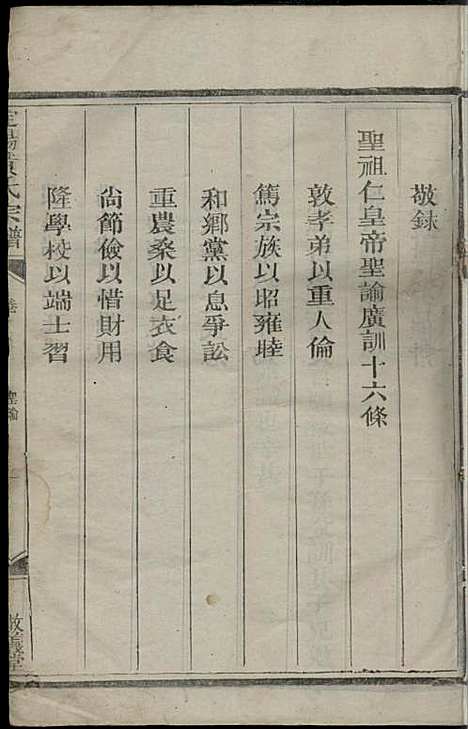 敬錄
聖祖仁皇帝聖諭廣訓十六條
敦孝弟以重人倫
篤宗族以昭雍睦
和鄉黨以息爭訟
重農桑以足衣食
尙節儉以惜財用
隆學校以端士習
氏宗譜
卷
聖諭
義堂